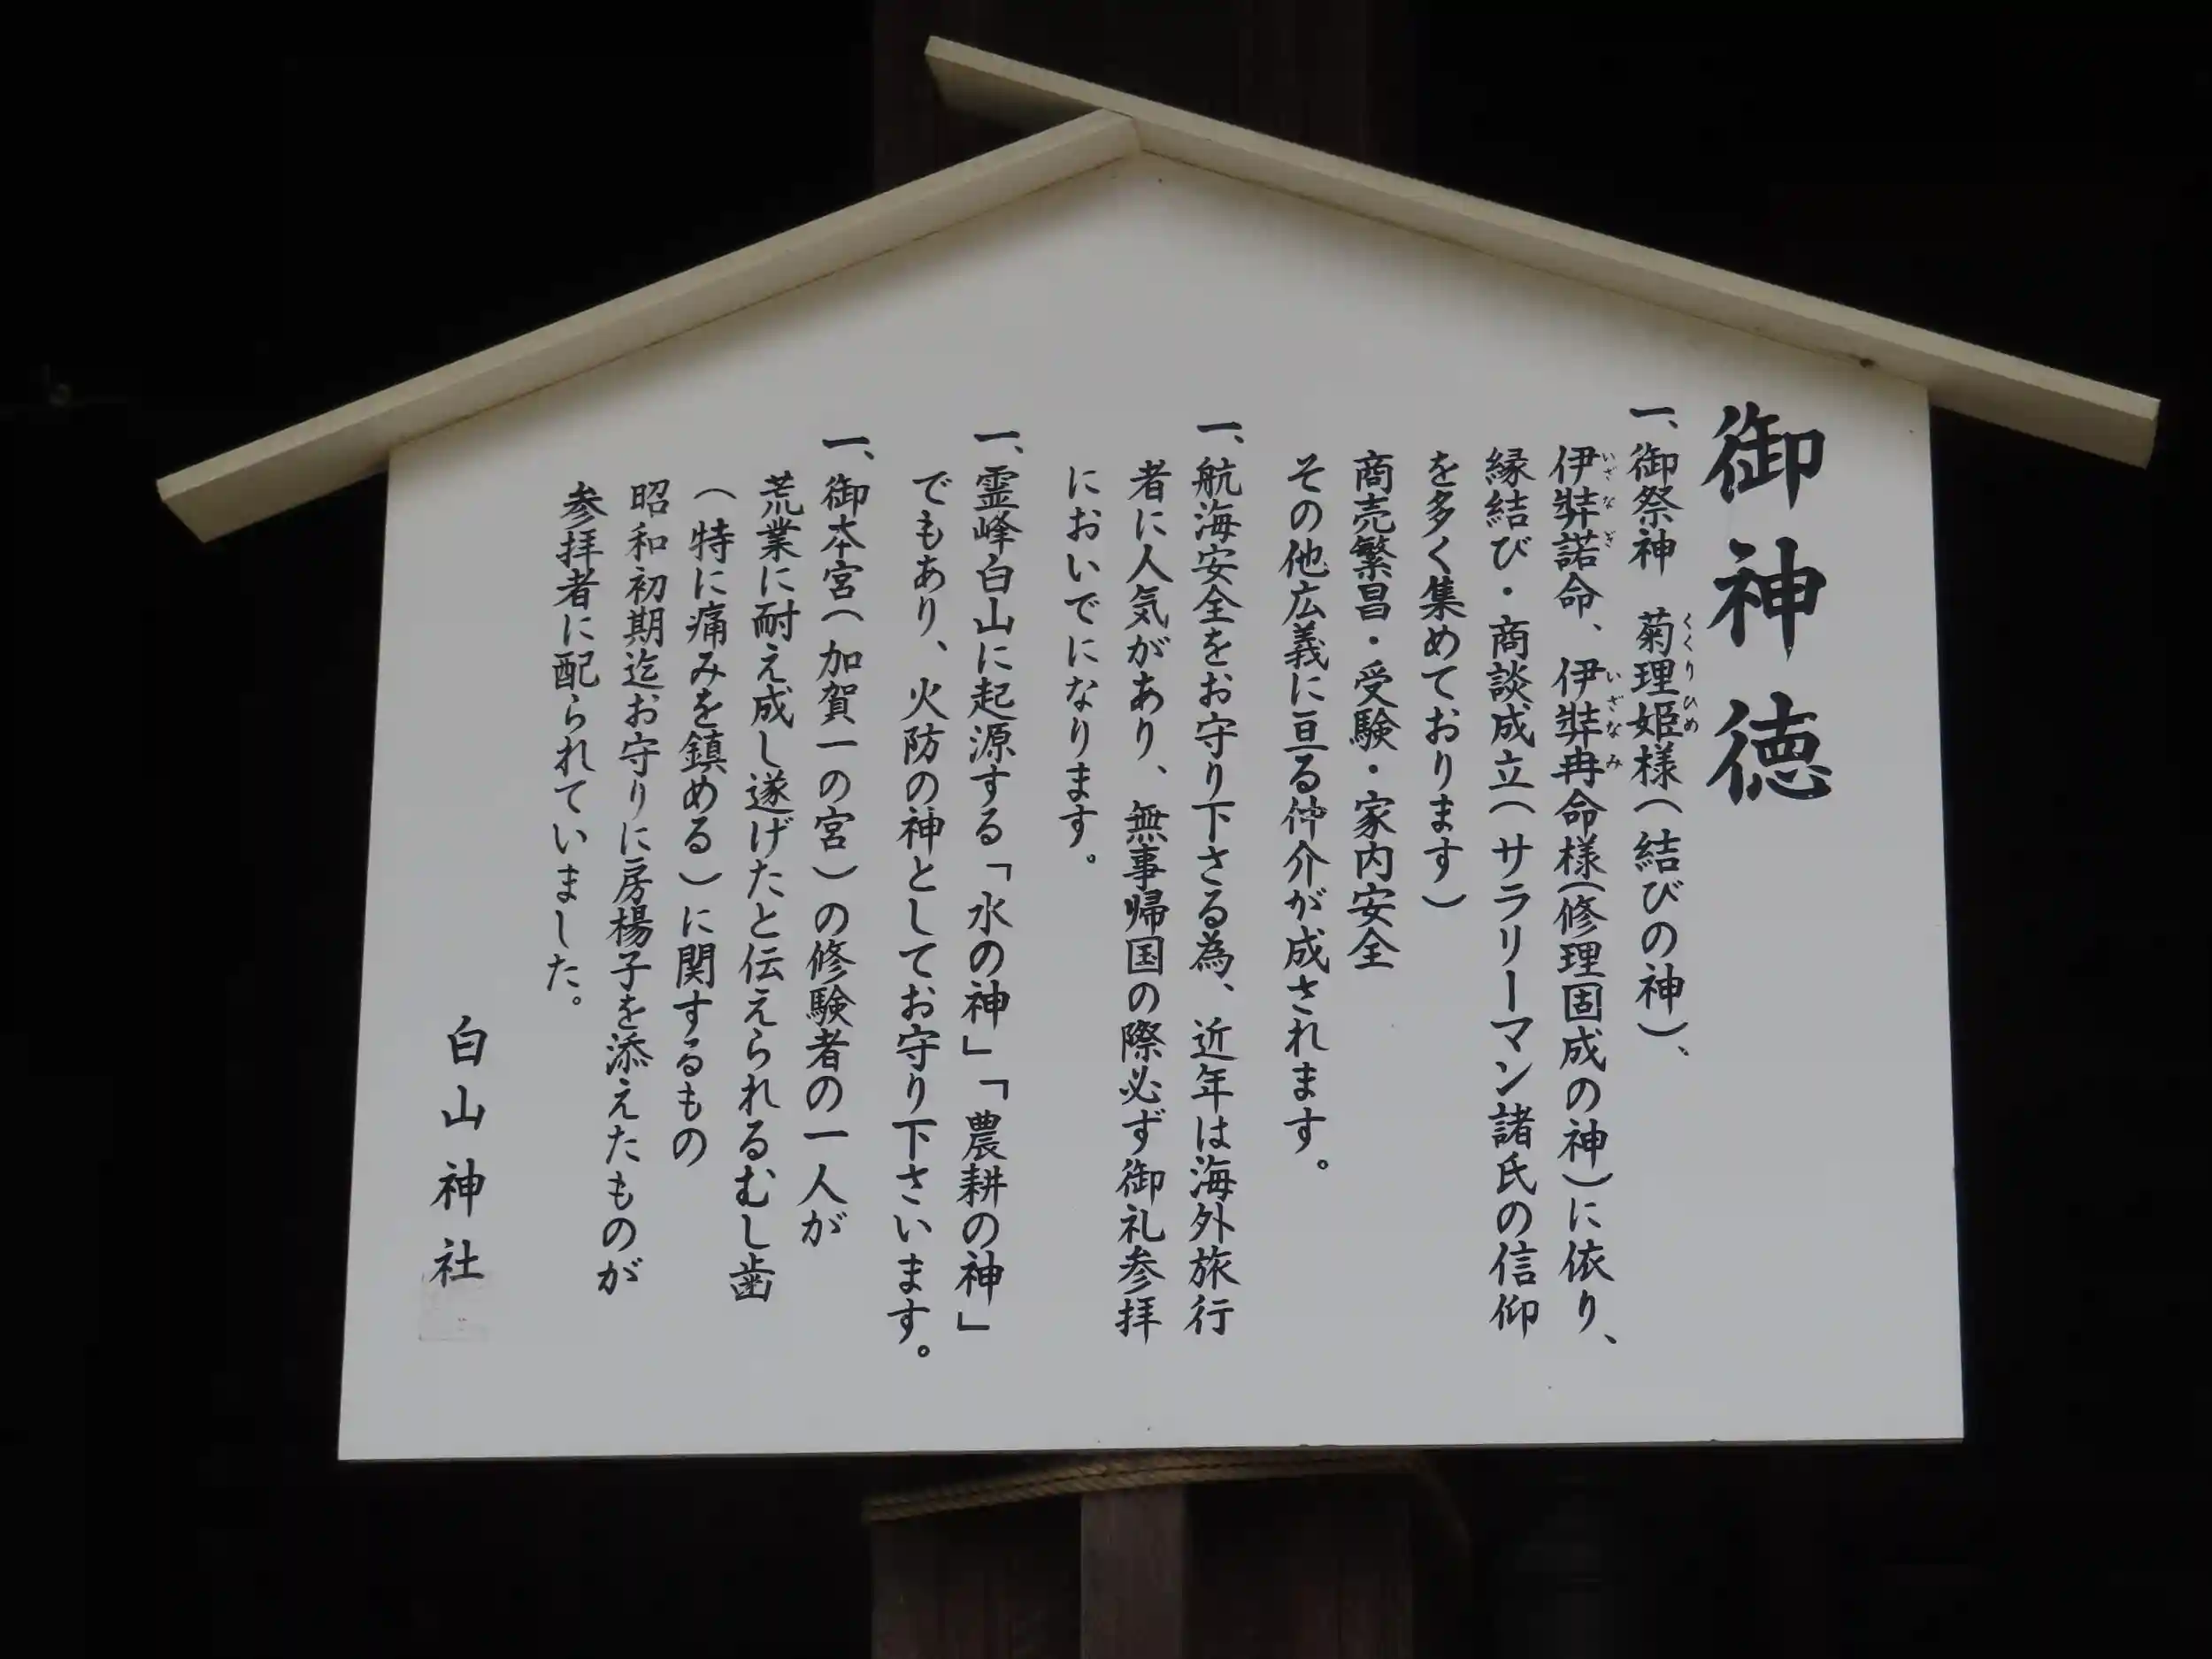 御神徳
一、御祭神　菊理姫様（結びの神）、
くくりひめ
伊弉諾命、伊弉冉命様（修理固成の神）に依り、
いざなぎ　いざなみ
縁結び・商談成立（サラリーマン諸氏の信仰
を多く集めております）
商売繁昌・受験・家内安全
その他広義に亘る仲介が成されます。
一、航海安全をお守り下さる為、近年は海外旅行
者に人気があり、無事帰国の際必ず御礼参拝
においでになります。
一、霊峰白山に起源する「水の神」「農耕の神」
でもあり、火防の神としてお守り下さいます。
一、御本宮（加賀一の宮）の修験者の一人が
荒業に耐え成し遂げたと伝えられるむし歯
（特に痛みを鎮める）に関するもの
昭和初期迄お守りに房楊子を添えたものが
参拝者に配られていました。
白山神社